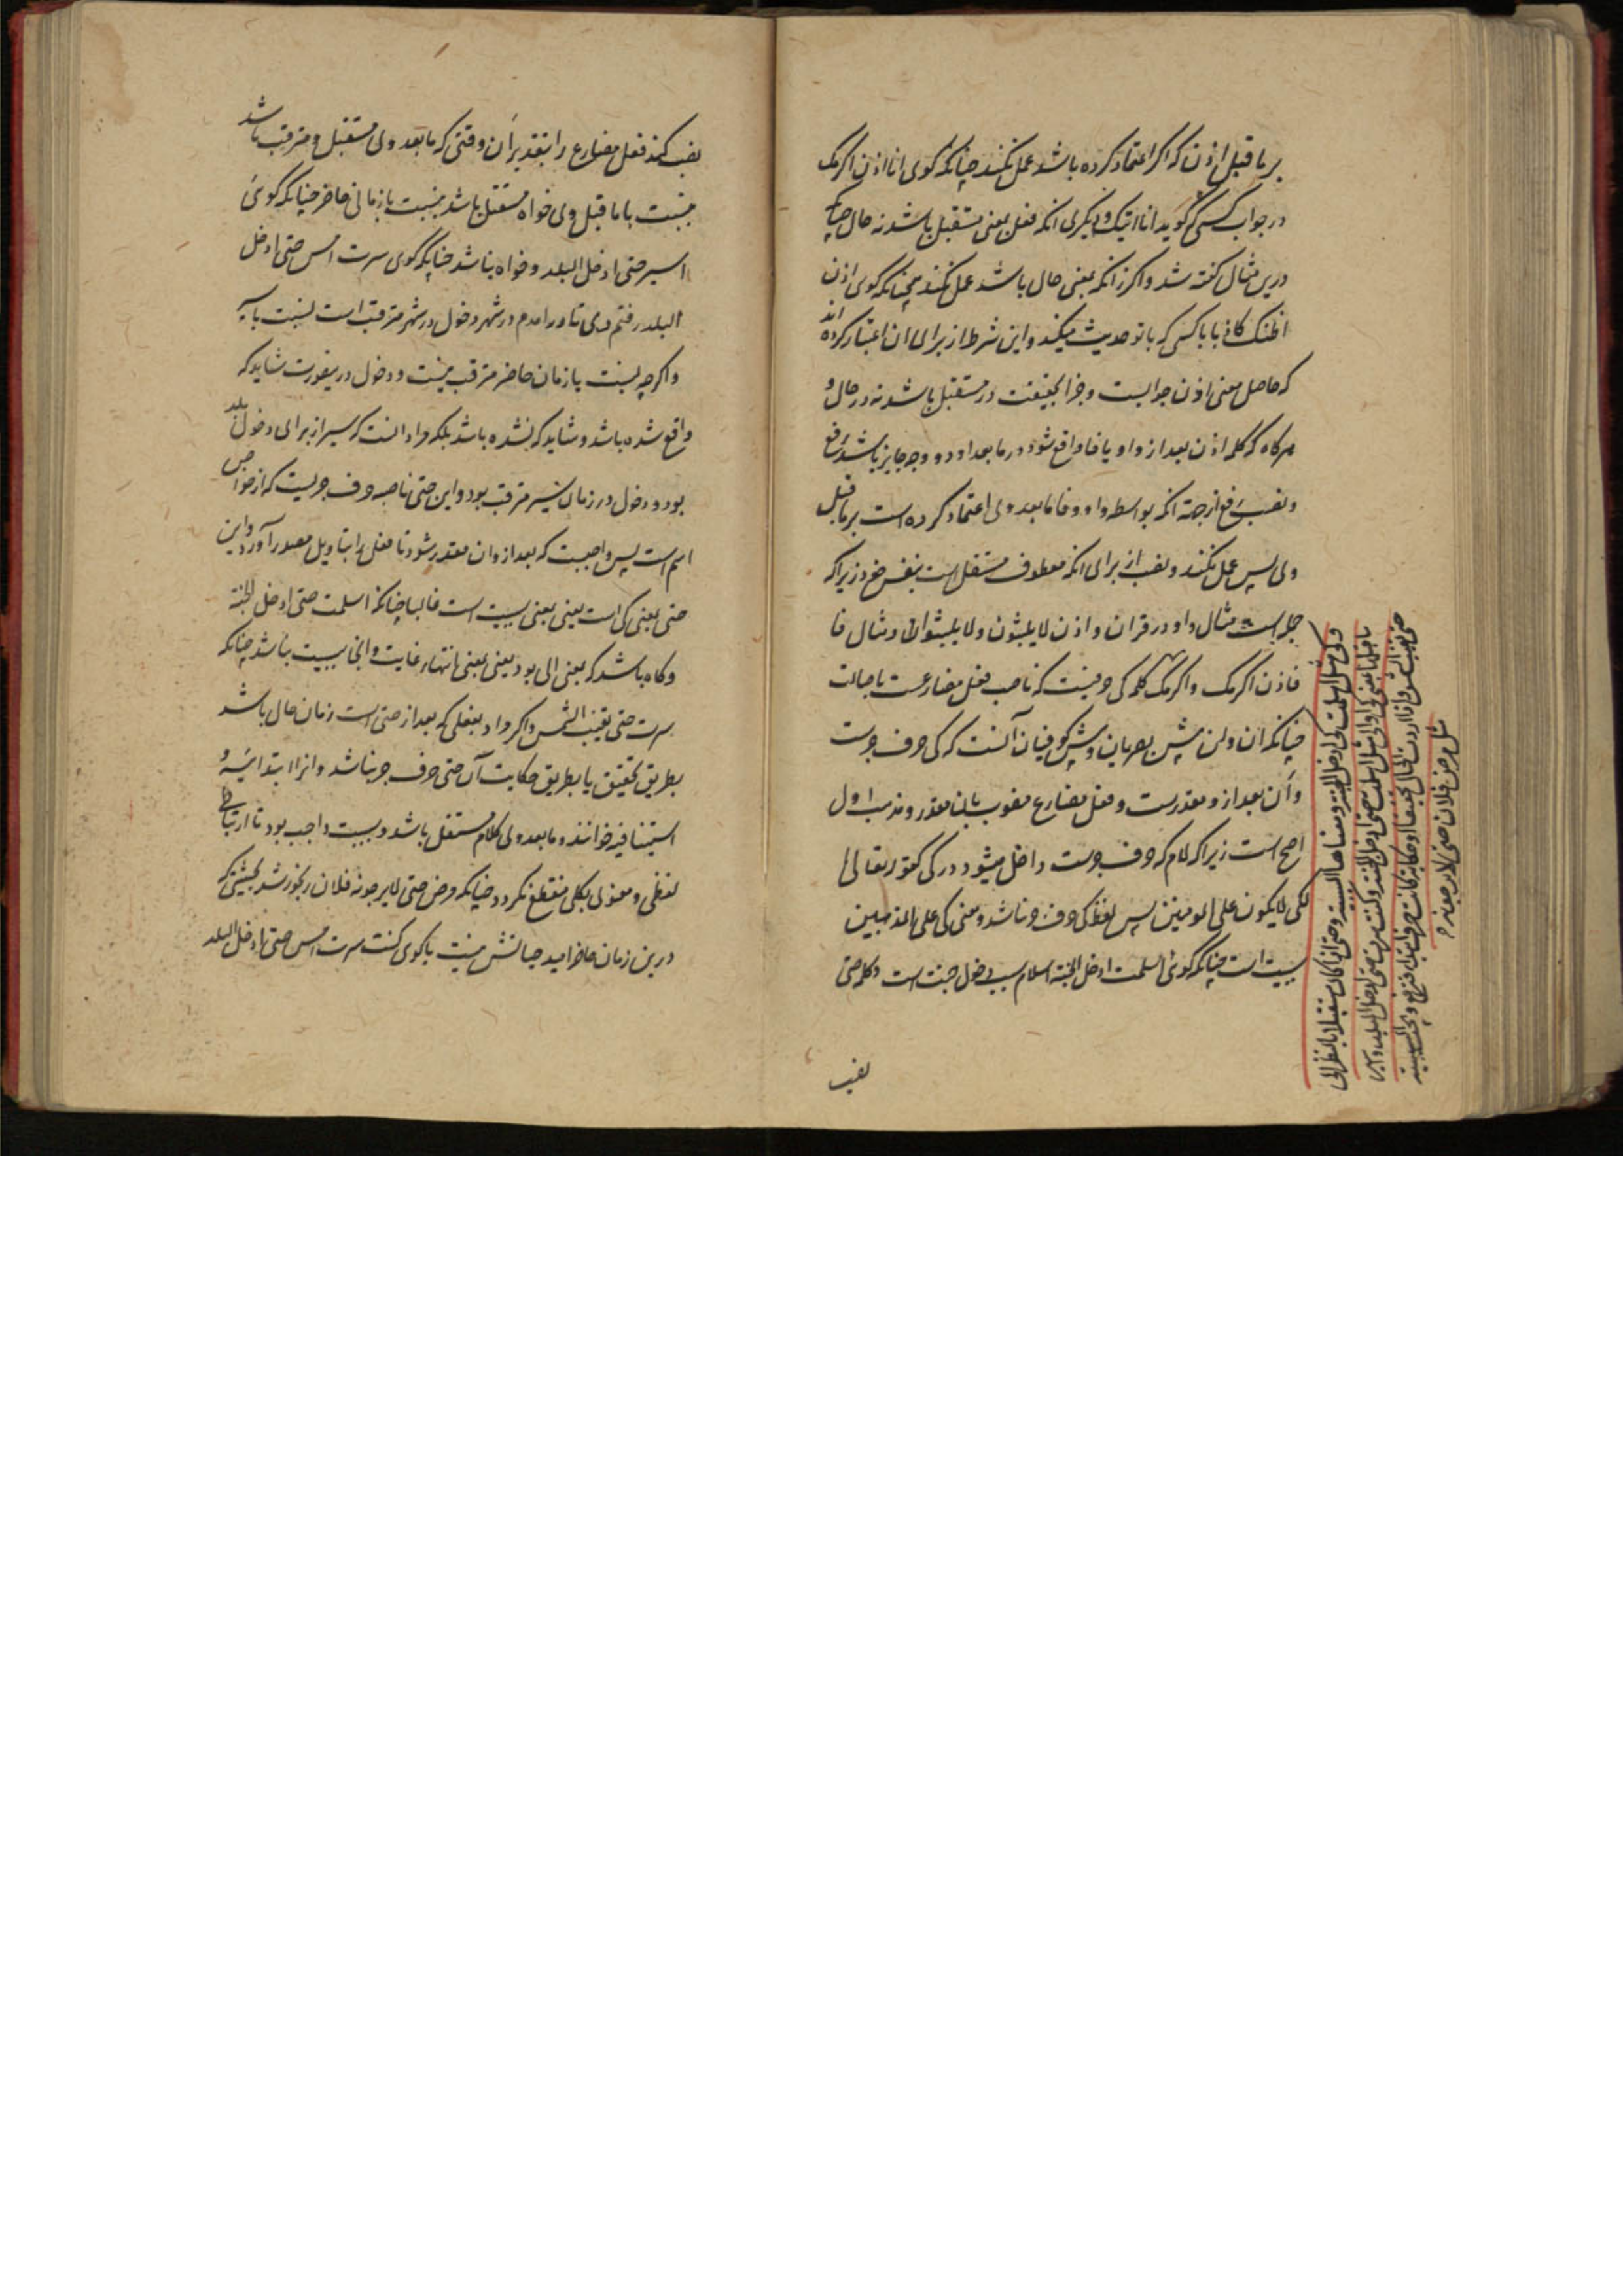 بر ماقبل اذن که اکر اعتماد کرده باشد عمل نکند چنانکه کوی انا اذن اکرمک
در جواب کسی که کوید انا اتیک و دیکری انکه فعل بمعنی مستقبل باشد نه حال چنانکه
درین مثال کفته شد و اکر زانکه بمعنی حال باشد عمل نکند همچنانکه کوی اذن
اظنک کاذبا با کسی که با تو حدیث میکند و این شرط از برای ان اعتبار کرده اند
که حاصل معنی اذن جوابست و جزا بحقیقت در مستقبل باشد نه در حال و
هرکاه که کلمه اذن بعد از واو یا فا واقع شود در مابعد او دو وجه جایز باشد رفع
و نصب رفع از جهة انکه بواسطه واو و فا مابعد وی اعتماد کرده است بر ماقبل
وی پس عمل نکند و نصب از برای انکه معطوف مستقل است بنفس خود زیرا که
جمله است مثال واو در قران و اذن لا یلبثون و لا یلبثوا و مثال فا
فاذن اکرمک و اکرمک کلمه کی حرفیست که ناصب فعل مضارعست باصالت
چنانکه ان و لن پیش بصریان و پیش کوفیان آنست که کی حرف جرست
و أن بعد از و مقدرست و فعل مضارع منصوب بان مقدر و مذهب اول
اصح است زیرا که لام که حرف جرست داخل میشود در کی کقوله تعالی
لکی لا یکون علی المومنین پس لفظ کی حرف جر نباشد و معنی کی علی المذهبین
سببیت است چنانکه کوئی اسلمت ادخل الجنة اسلام سبب دخول جنت است و کلمه حتی
نصب
و کی مثل اسلمت کی ادخل الجنة و معناها السببیة و حتی اذا کان مستقبلا بالنظر الی
ما قبلها بمعنی کی او الی مثل اسلمت حتی ادخل الجنة و کنت سرت حتی ادخل البلد و اسیر
حتی تغیب الشمس و اذا اردت الحال تحقیقا او حکایة کانت حرف ابتداء فترفع و تجب السببیة
مثل مرض فلان حتی لا یرجونه
نصب کند فعل مضارع را بتقدیر أن وقتی که مابعد وی مستقبل و مترقب باشد
بنسبت با ماقبل وی خواه مستقبل باشد بنسبت با زمانی حاضر چنانکه کوئی
اسیر حتی ادخل البلد و خواه نباشد چنانکه کوی سرت امس حتی ادخل
البلد رفتم دی تا درامدم در شهر دخول در شهر مترقب است بنسبت با سیر
و اکرچه بنسبت با زمان حاضر مترقب نیست و دخول درینصورت شاید که
واقع شده باشد و شاید که نشده باشد بلکه مراد انست که سیر از برای دخول بلد
بود و دخول در زمان سیر مترقب بود و این حتی ناصبه حرف جریست که از خواص
اسم است پس واجبست که بعد از و ان مقدر شود تا فعل را بتاویل مصدر آورد و این
حتی بمعنی کی است یعنی بمعنی سببیت است غالبا چنانکه اسلمت حتی ادخل الجنة
و کاه باشد که بمعنی الی بود یعنی بمعنی انتهاء غایت و انجا سببیت نباشد چنانکه
سرت حتی تغیب الشمس و اکر مراد بفعلی که بعد از حتی است زمان حال باشد
بطریق تحقیق یا بطریق حکایت آن حتی حرف جر نباشد و انرا ابتدائیه و
استینافیه خوانند و مابعد وی کلام مستقل باشد و سببیت واجب بود تا ارتباط
لفظی و معنوی بکلی منقطع نکردد چنانکه مرض حتی لا یرجونه فلان رنجور شد بحیثیتی که
درین زمان حاضر امید حیاتش نیست یا کوی کنت سرت امس حتی ادخل البلد